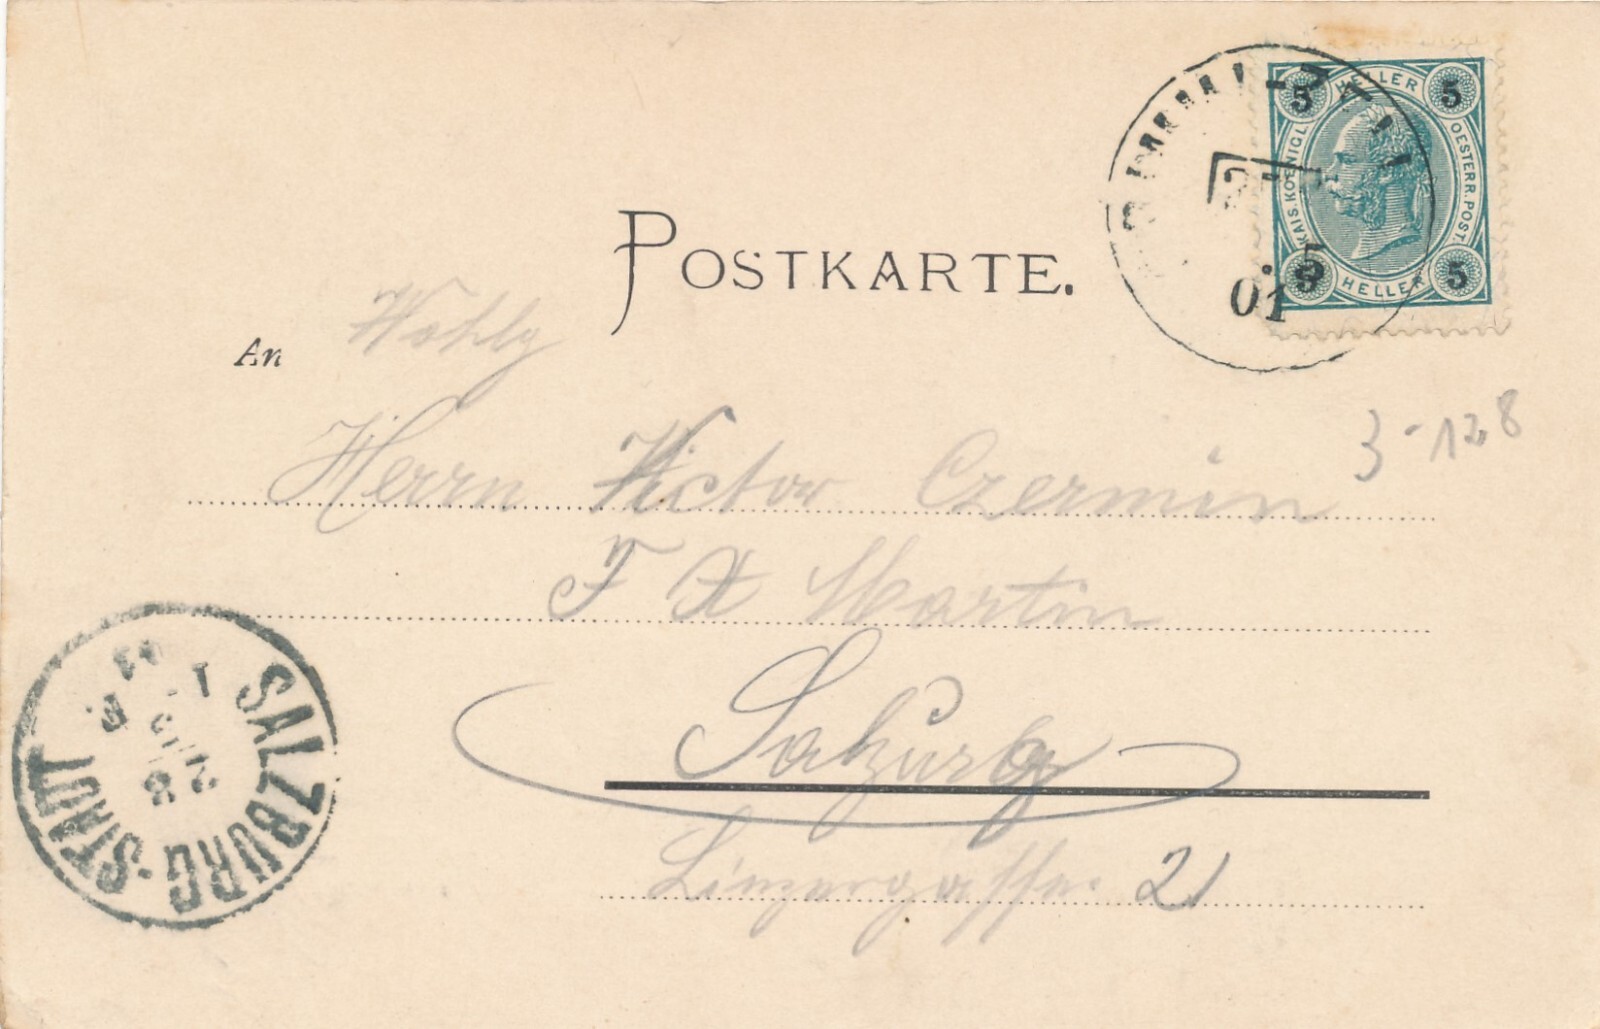 POSTKARTE.
HELLER
5 5
KAIS. KOENIGL. OESTERR. POST.
5 5
HELLER
01
An Wohlg
Herrn Victor Czermin
3-128
F X Martin
Salzurg
Linzergasse 21
SALZBURG-STADT